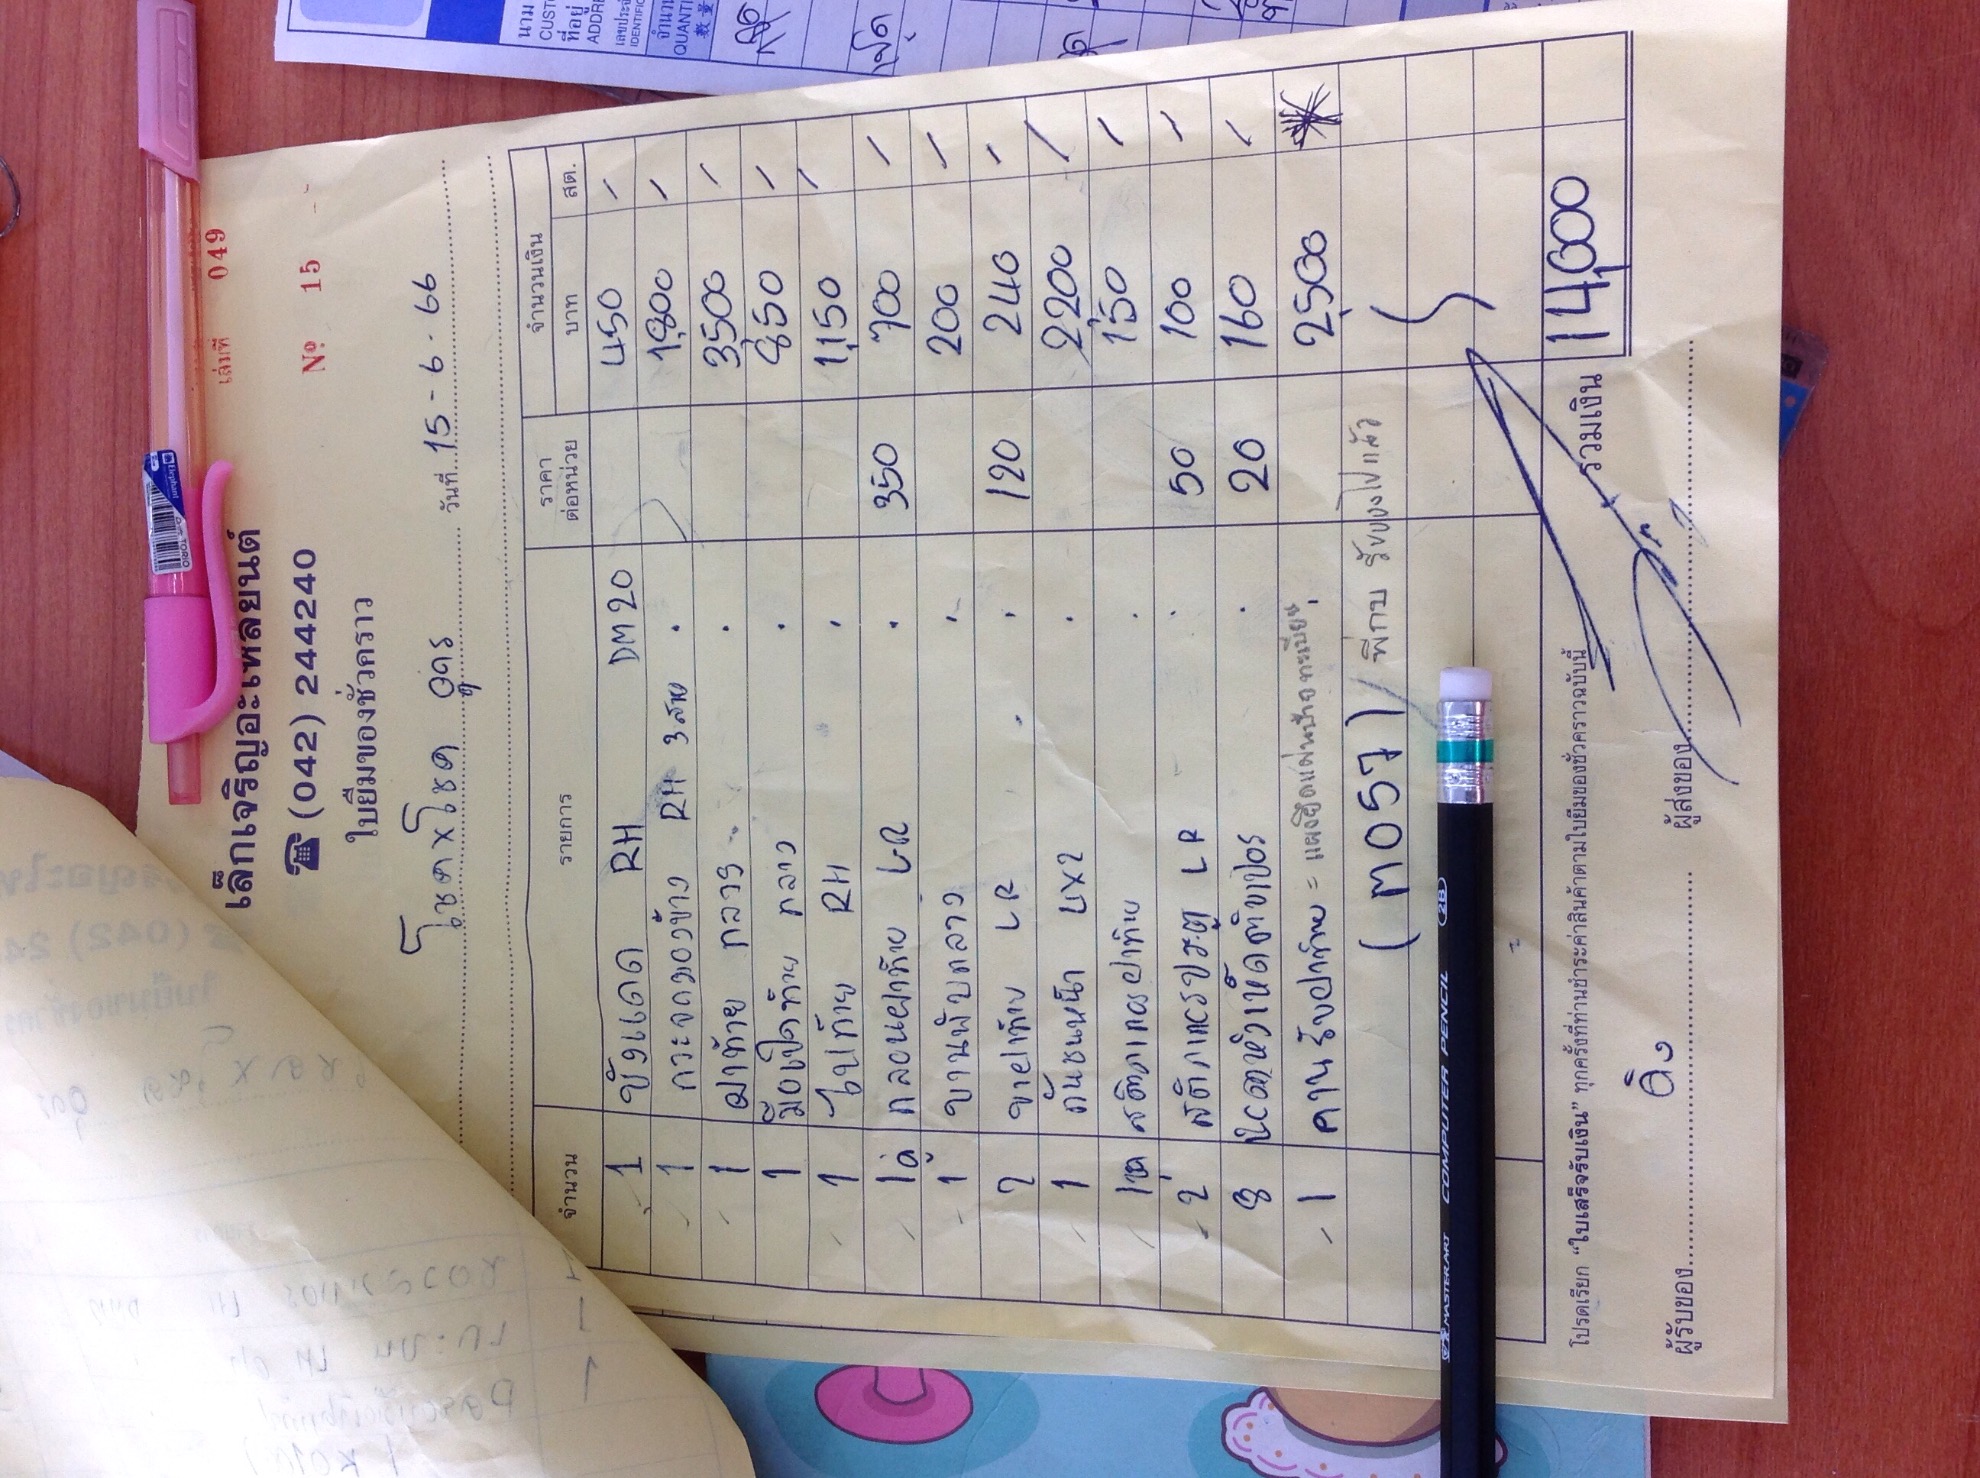 เล่มที่ 049
เล็กเจริญอะไหล่ยนต์
☎ (042) 244240 Nº 15
ใบยืมของชั่วคราว
โชคxโชค อุดร วันที่ 15-6-66
จำนวน รายการ ราคาต่อหน่วย จำนวนเงิน บาท สต.
1 บังแดด RH DM20 450 /
1 กระจกมองข้าง RH 3สาย . 1,800 /
1 ฝาท้าย กลาง . 3500 /
1 มือเปิดท้าย กลาง . 850 /
1 ไฟท้าย RH . 1,150 /
1คู่ กลอนฝาท้าย L-R . 350 700 /
1 บานพับกลาง 200 /
2 ขาฝาท้าย LR . 120 240 /
1 กันชนหน้า 4x2 . 2,200 /
1ชุด สติกเกอร์ฝาท้าย . 150 /
2 สติกเกอร์ประตู LR . 50 100 /
8 หัวเห็ด . 20 160 /
1 คานรับฝาท้าย = แผงยึดแผ่นป้ายทะเบียน . 2,500
(MO57) พี่กบ รับของไปแล้ว
รวมเงิน 14,000
โปรดเรียก “ใบเสร็จรับเงิน” ทุกครั้งที่ท่านชำระค่าสินค้าตามใบยืมของชั่วคราวฉบับนี้
ผู้รับของ ผู้ส่งของ
MASTERART COMPUTER PENCIL 2B
นาม
CUST
ที่อยู่
ADDRE
เลขประจำ
IDENTIFIC
จำนวน
QUANTI
數量